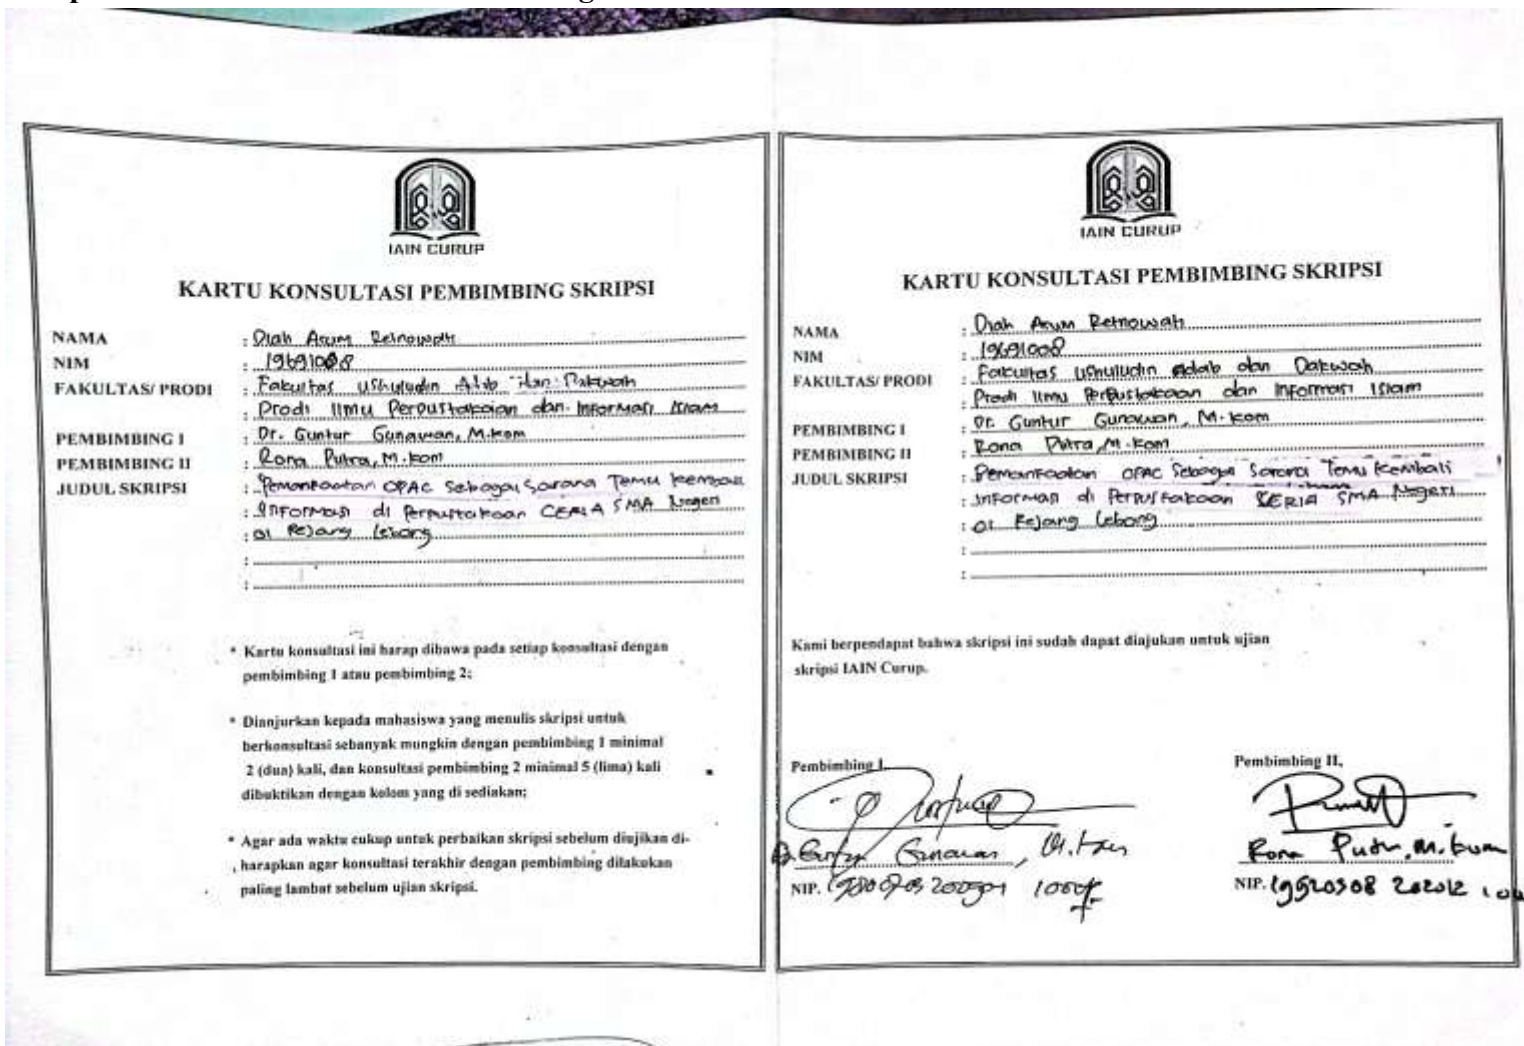 IAIN CURUP
KARTU KONSULTASI PEMBIMBING SKRIPSI
NAMA : Diah Arum Retnowati
NIM : 19691008
FAKULTAS/ PRODI : Fakultas Ushuludin Adab dan Dakwah
: Prodi Ilmu Perpustakaan dan Informasi Islam
PEMBIMBING I : Dr. Guntur Gunawan, M.kom
PEMBIMBING II : Rona Putra, M.kom
JUDUL SKRIPSI : Pemanfaatan OPAC Sebagai Sarana Temu kembali
: Informasi di Perpustakaan CERIA SMA Negeri
: 01 Rejang Lebong
:
:
* Kartu konsultasi ini harap dibawa pada setiap konsultasi dengan
pembimbing 1 atau pembimbing 2;
* Dianjurkan kepada mahasiswa yang menulis skripsi untuk
berkonsultasi sebanyak mungkin dengan pembimbing 1 minimal
2 (dua) kali, dan konsultasi pembimbing 2 minimal 5 (lima) kali
dibuktikan dengan kolom yang di sediakan;
* Agar ada waktu cukup untuk perbaikan skripsi sebelum diujikan di-
harapkan agar konsultasi terakhir dengan pembimbing dilakukan
paling lambat sebelum ujian skripsi.
IAIN CURUP
KARTU KONSULTASI PEMBIMBING SKRIPSI
NAMA : Diah Arum Retnowati
NIM : 19691008
FAKULTAS/ PRODI : Fakultas Ushuludin Adab dan Dakwah
: Prodi Ilmu Perpustakaan dan Informasi Islam
PEMBIMBING I : Dr. Guntur Gunawan, M.kom
PEMBIMBING II : Rona Putra, M.kom
JUDUL SKRIPSI : Pemanfaatan OPAC Sebagai Sarana Temu kembali
: Informasi di Perpustakaan CERIA SMA Negeri
: 01 Rejang Lebong
:
:
Kami berpendapat bahwa skripsi ini sudah dapat diajukan untuk ujian
skripsi IAIN Curup.
Pembimbing I, Pembimbing II,
Gunawan, M.kom Rona Putra, M.kom
NIP. NIP.